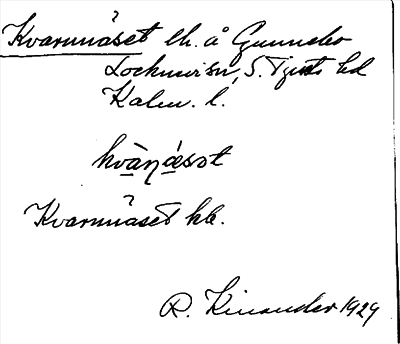 Kvarnnåset lh. å Gunnebo
Locknevisn, S. Tjusts hd
Kalm. l.
kvànåsət
Kvarnnåset kb.
R. Kinander 1929